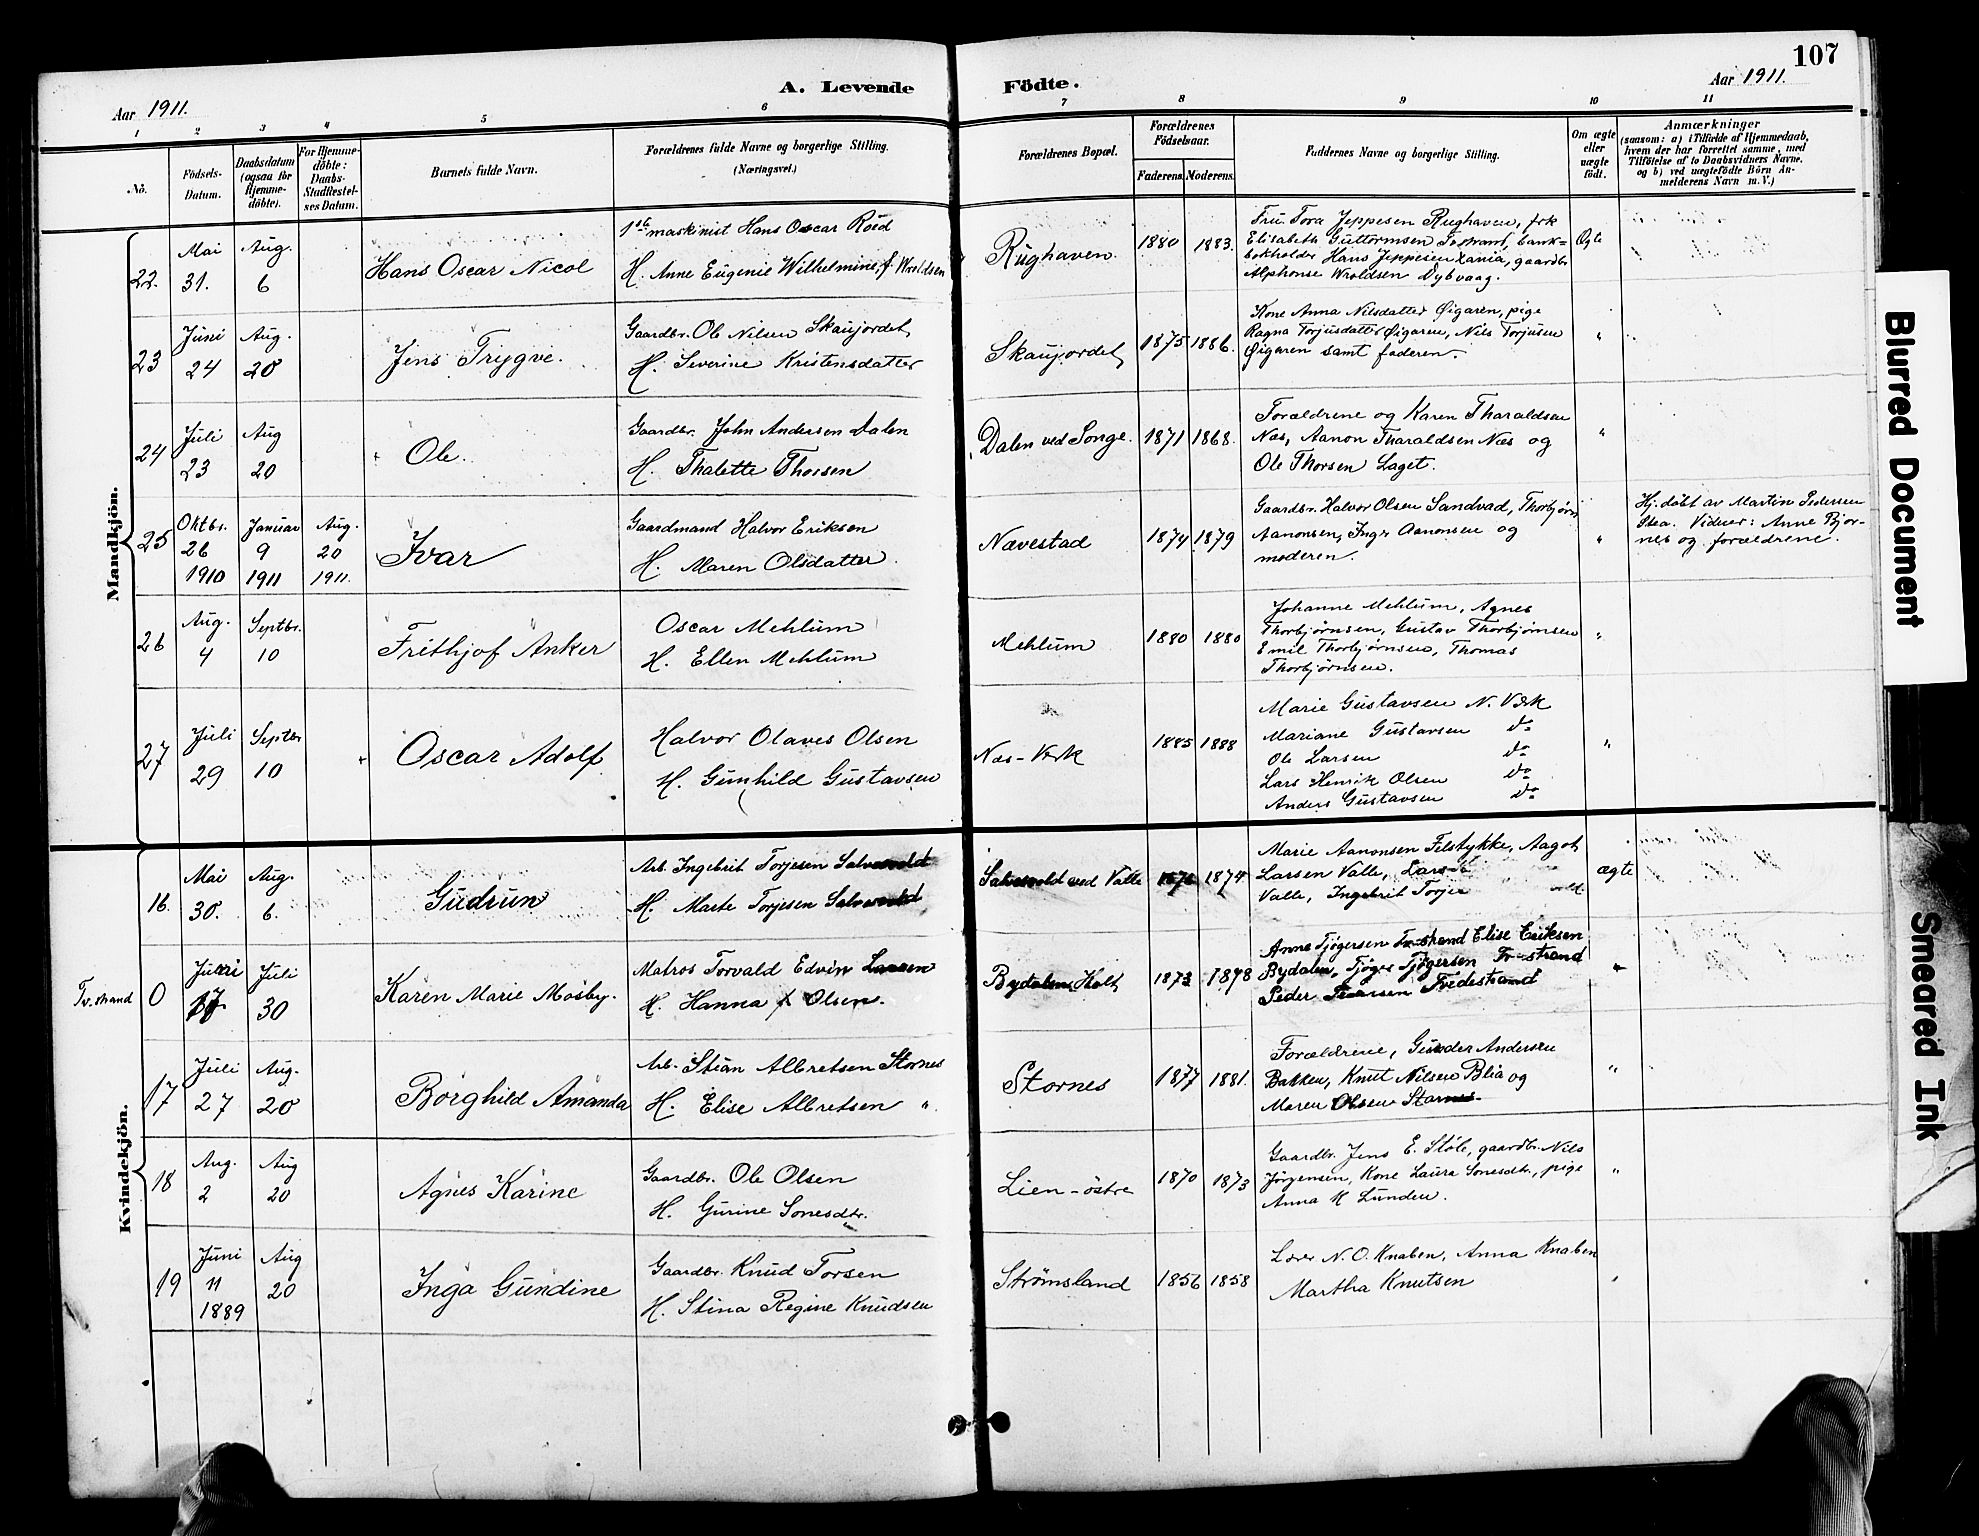 107
A. Levende Födte.
Aar 1911.
Aar 1911.
1 2 3 4 5 6 7 8 9 10 11
No.
Födsels-Datum.
Daabsdatum (ogsaa for Hjemme-döbte).
For Hjemme-döbte: Daabs-Stadfæstel-ses Datum.
Barnets fulde Navn.
Forældrenes fulde Navne og borgerlige Stilling.
(Næringsvei.)
Forældrenes Bopæl.
Forældrenes Födselsaar.
Faderens. Moderens.
Faddernes Navne og borgerlige Stilling.
Om ægte eller uægte födt.
Anmærkninger
(saasom: a) i Tilfælde af Hjemmedaab,
hvem der har forrettet samme, med
Tilföielse af to Daabsvidners Navne.
og b) ved uægtefödte Börn An-
melderens Navn m. V.)
Mandkjön.
22. Mai 31. Aug. 6 Hans Oscar Nicol
1ste maskinist Hans Oscar Röed
H. Anne Eugenie Wilhelmine, f. Wroldsen
Rughaven 1880 1883.
Fru Tora Jeppesen Rughaven, frk
Elisabeth Guttormsen Tvestrand, bank=
bokholder Hans Jeppesen Xania, gaardbr
Alphonse Wroldsen Dybvaag.
Ægte
23 Juni 24 Aug. 20 Jens Trygve.
Gaardbr. Ole Nilsen Skaujordet
H. Severine Kristensdatter
Skaujordet 1875 1886.
Kone Anna Nilsdatter Øigaren, pige
Ragna Torjusdatter Øigaren, Nils Torjusen
Øigaren samt faderen.
"
24 Juli 23 Aug 20 Ole.
Gaardbr. John Andersen Dalen
H. Thalette Thorsen
Dalen ved Songe. 1871 1868.
Forældrene og Karen Tharaldsen
Næs, Aanon Tharaldsen Næs og
Ole Thorsen Laget.
"
25 Oktbr. 26 1910 Januar 9 1911 Aug. 20 1911. Ivar
Gaardmand Halvor Eriksen
H. Maren Olsdatter.
Nævestad 1874 1879
Gaardbr. Halvor Olsen Sandvad, Thorbjørn
Aanonsen, Inger Aanonsen og
moderen.
"
Hj. døbt av Martin Pedersen
Vidner: Anne Bjor-
nes og forældrene.
26 Aug. 4 Septbr. 10 Frithjof Anker
Oscar Mehlum
H. Ellen Mehlum
Mehlum 1880 1880
Johanne Mehlum, Agnes
Thorbjørnsen, Gustav Thorbjørnsen
Emil Thorbjørnsen, Thomas
Thorbjørnsen.
"
27 Juli 29 Septbr 10 Oscar Adolf
Halvor Olaves Olsen
H. Gunhild Gustavsen
Næs-Værk 1885 1888
Marie Gustavsen N. Værk
Mariane Gustavsen do
Ole Larsen do
Lars Henrik Olsen do
Anders Gustavsen do
"
Kvindekjön.
16. Mai 30. Aug. 6. Gudrun
Arb. Ingebrit Torjesen
H. Marte Torjesen
ved Valle 1874
Marie Aanonsen Felstykke, Aagot
Larsen Valle, Lars
Valle, Ingebrit Torje
ægte
Tv.strand 0 Juni 17 Juli 30 Karen Marie Mosby.
Matros Torvald Edvin Larsen
H. Hanna f Olsen.
Bydalen, Holt 1873 1878
Anne Tjøgersen Tv-strand Elise Eriksen
Bydalen, Tjøger Tjøgersen Tv-strand
Peder Tvedestrand
"
17 Juli 27 Aug. 20 Borghild Amanda
Arb. Stian Albretsen Stornes
H. Elise Albretsen "
Stornes 1877 1881.
Forældrene, Gunder Andersen
Bakken, Knut Nilsen Blia og
Maren Olsen Stornes.
"
18 Aug. 2 Aug 20 Agnes Karine
Gaardbr. Ole Olsen
H. Gurine Sonesdtr.
Lien-östre 1870 1873
Gaardbr. Jens E. Støle, gaardbr. Nils
Jörgensen, Kone Laura Sonesdtr., pige
Anna K Lunden.
"
19 Juni 11 1889 Aug 20 Inga Gundine
Gaardbr. Knud Torsen
H. Stina Regine Knudsen
Strømsland 1856 1858
Lærer N. O. Knaben, Anna Knaben
Martha Knutsen
"
Blurred Document
Smeared Ink